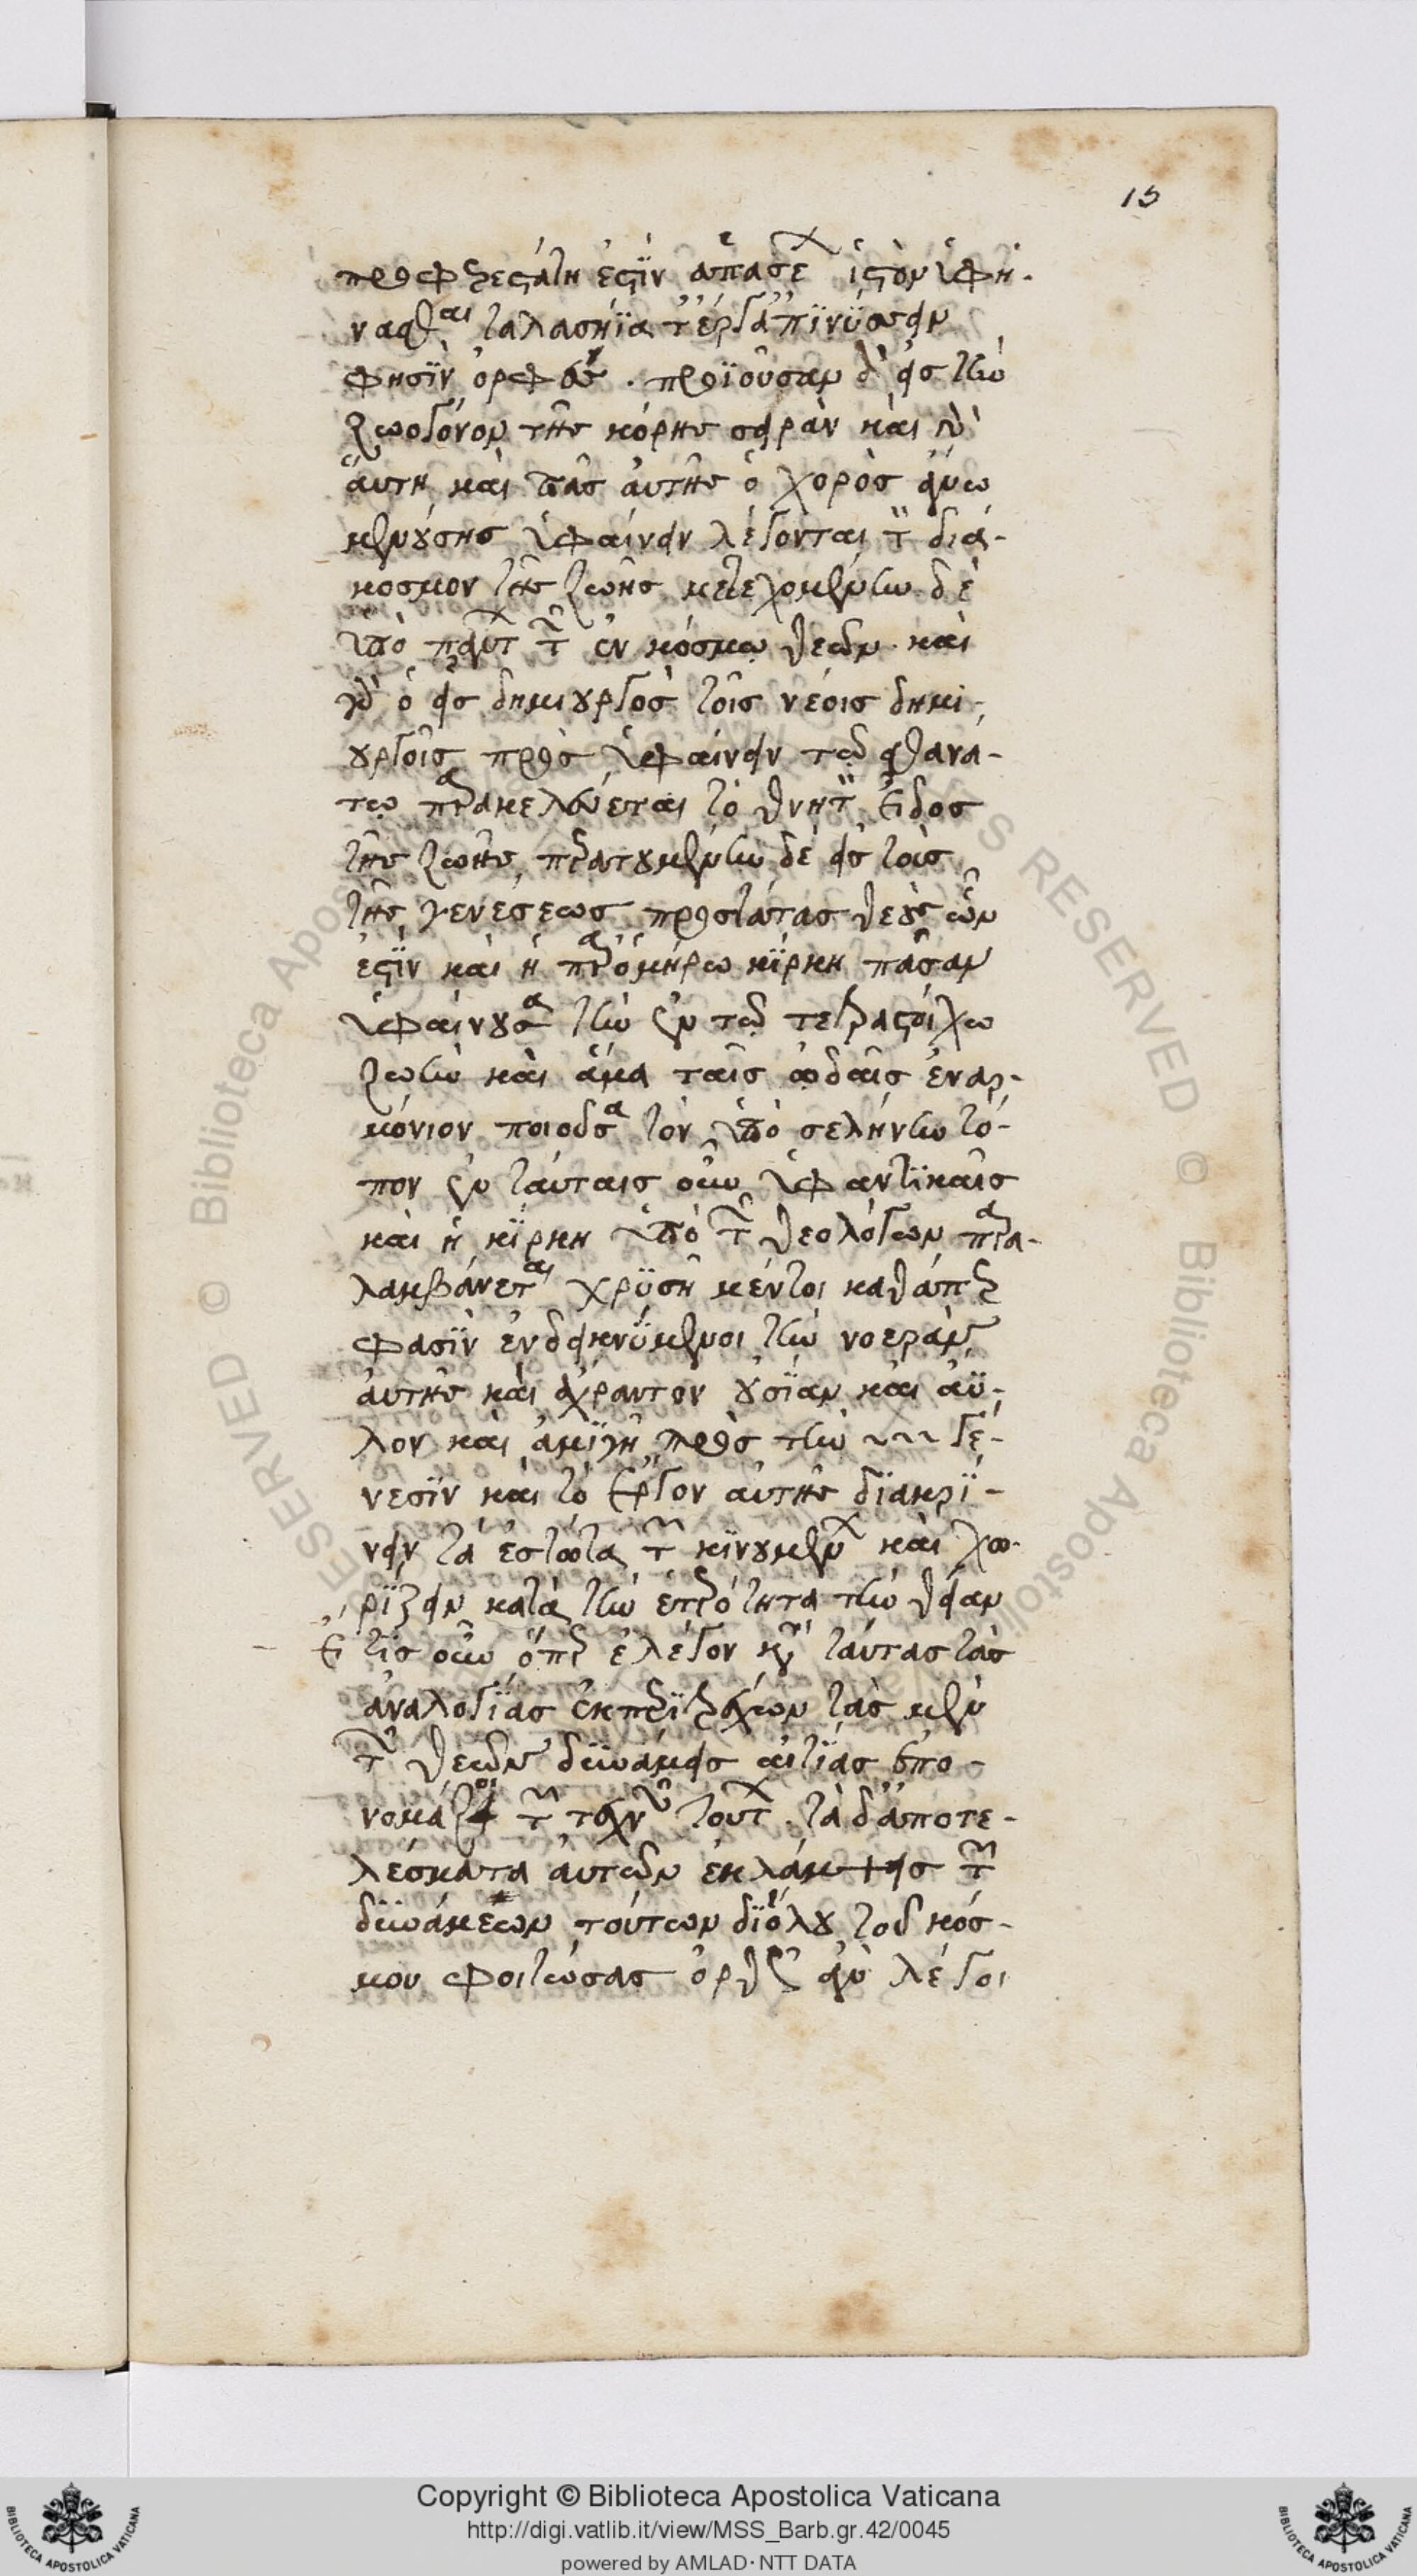 15
προφερεστάτη ἐστὶν ἁπασέων ἱστὸν ὑφή-
νασθαι ταλασήϊα τ' ἔργα πινύσσειν
φησὶν ὀρφεύς. προϊοῦσαν δ' εἰς τὴν
ζωογόνον τῆς κόρης σειρὰν καὶ γὰρ
αὕτη καὶ πᾶς αὐτῆς ὁ χορὸς ἄνω
μενούσης ὑφαίνειν λέγονται τὸν διά-
κοσμον τῆς ζωῆς μετεχομένην δὲ
ὑπὸ πάντων τῶν ἐν κόσμω θεῶν. καὶ
γὰρ ὁ εἷς δημιουργὸς τοῖς νέοις δημι-
ουργοῖς προσυφαίνειν τῷ ἀθανά-
τῳ παρακελεύεται τὸ θνητὸν εἶδος
τῆς ζωῆς, περατουμένην δὲ εἰς τοὺς
τῆς γενέσεως προστάτας θεοὺς ὧν
ἐστὶν καὶ ἡ παρ' ὁμήρω κίρκη πᾶσαν
ὑφαίνουσα τὴν ἐν τῷ τετραστοίχω
ζωὴν καὶ ἅμα ταῖς ᾠδαῖς ἐναρ-
μόνιον ποιοῦσα τὸν ὑπὸ σελήνην τό-
πον ἐν ταύταις οὖν ὑφαντικαῖς
καὶ ἡ κίρκη ὑπὸ τῶν θεολόγων παρα-
λαμβάνεται χρυσῆ μέντοι καθάπερ
φασὶν ἐνδεικνύμενοι τὴν νοερὰν
αὐτῆς καὶ ἄχραντον οὐσίαν καὶ ἄϋ-
λον καὶ ἀμιγῆ πρὸς τὴν γέ-
νεσιν καὶ τὸ ἔργον αὐτῆς διακρί-
νειν τὰ ἑστῶτα τῶν κινουμένων καὶ χω-
ρίζειν κατὰ τὴν ἑτερότητα τὴν θείαν
εἴ τις οὖν ὅπερ ἔλεγον κατὰ ταύτας τὰς
ἀναλογίας ἐκπεριερχόμενων τὰς μὲν
τῶν θεῶν δυνάμεις αἰτίας ἐπο-
νομάζοι τῶν τεχνῶν τούτων. τὰ δ' ἀποτε-
λέσματα αὐτῶν ἐκλάμψεις τῶν
δυνάμεων τούτων δι' ὅλου τοῦ κόσ-
μου φοιτώσας ὀρθῶς ἂν λέγοι
Copyright © Biblioteca Apostolica Vaticana
http://digi.vatlib.it/view/MSS_Barb.gr.42/0045
powered by AMLAD · NTT DATA